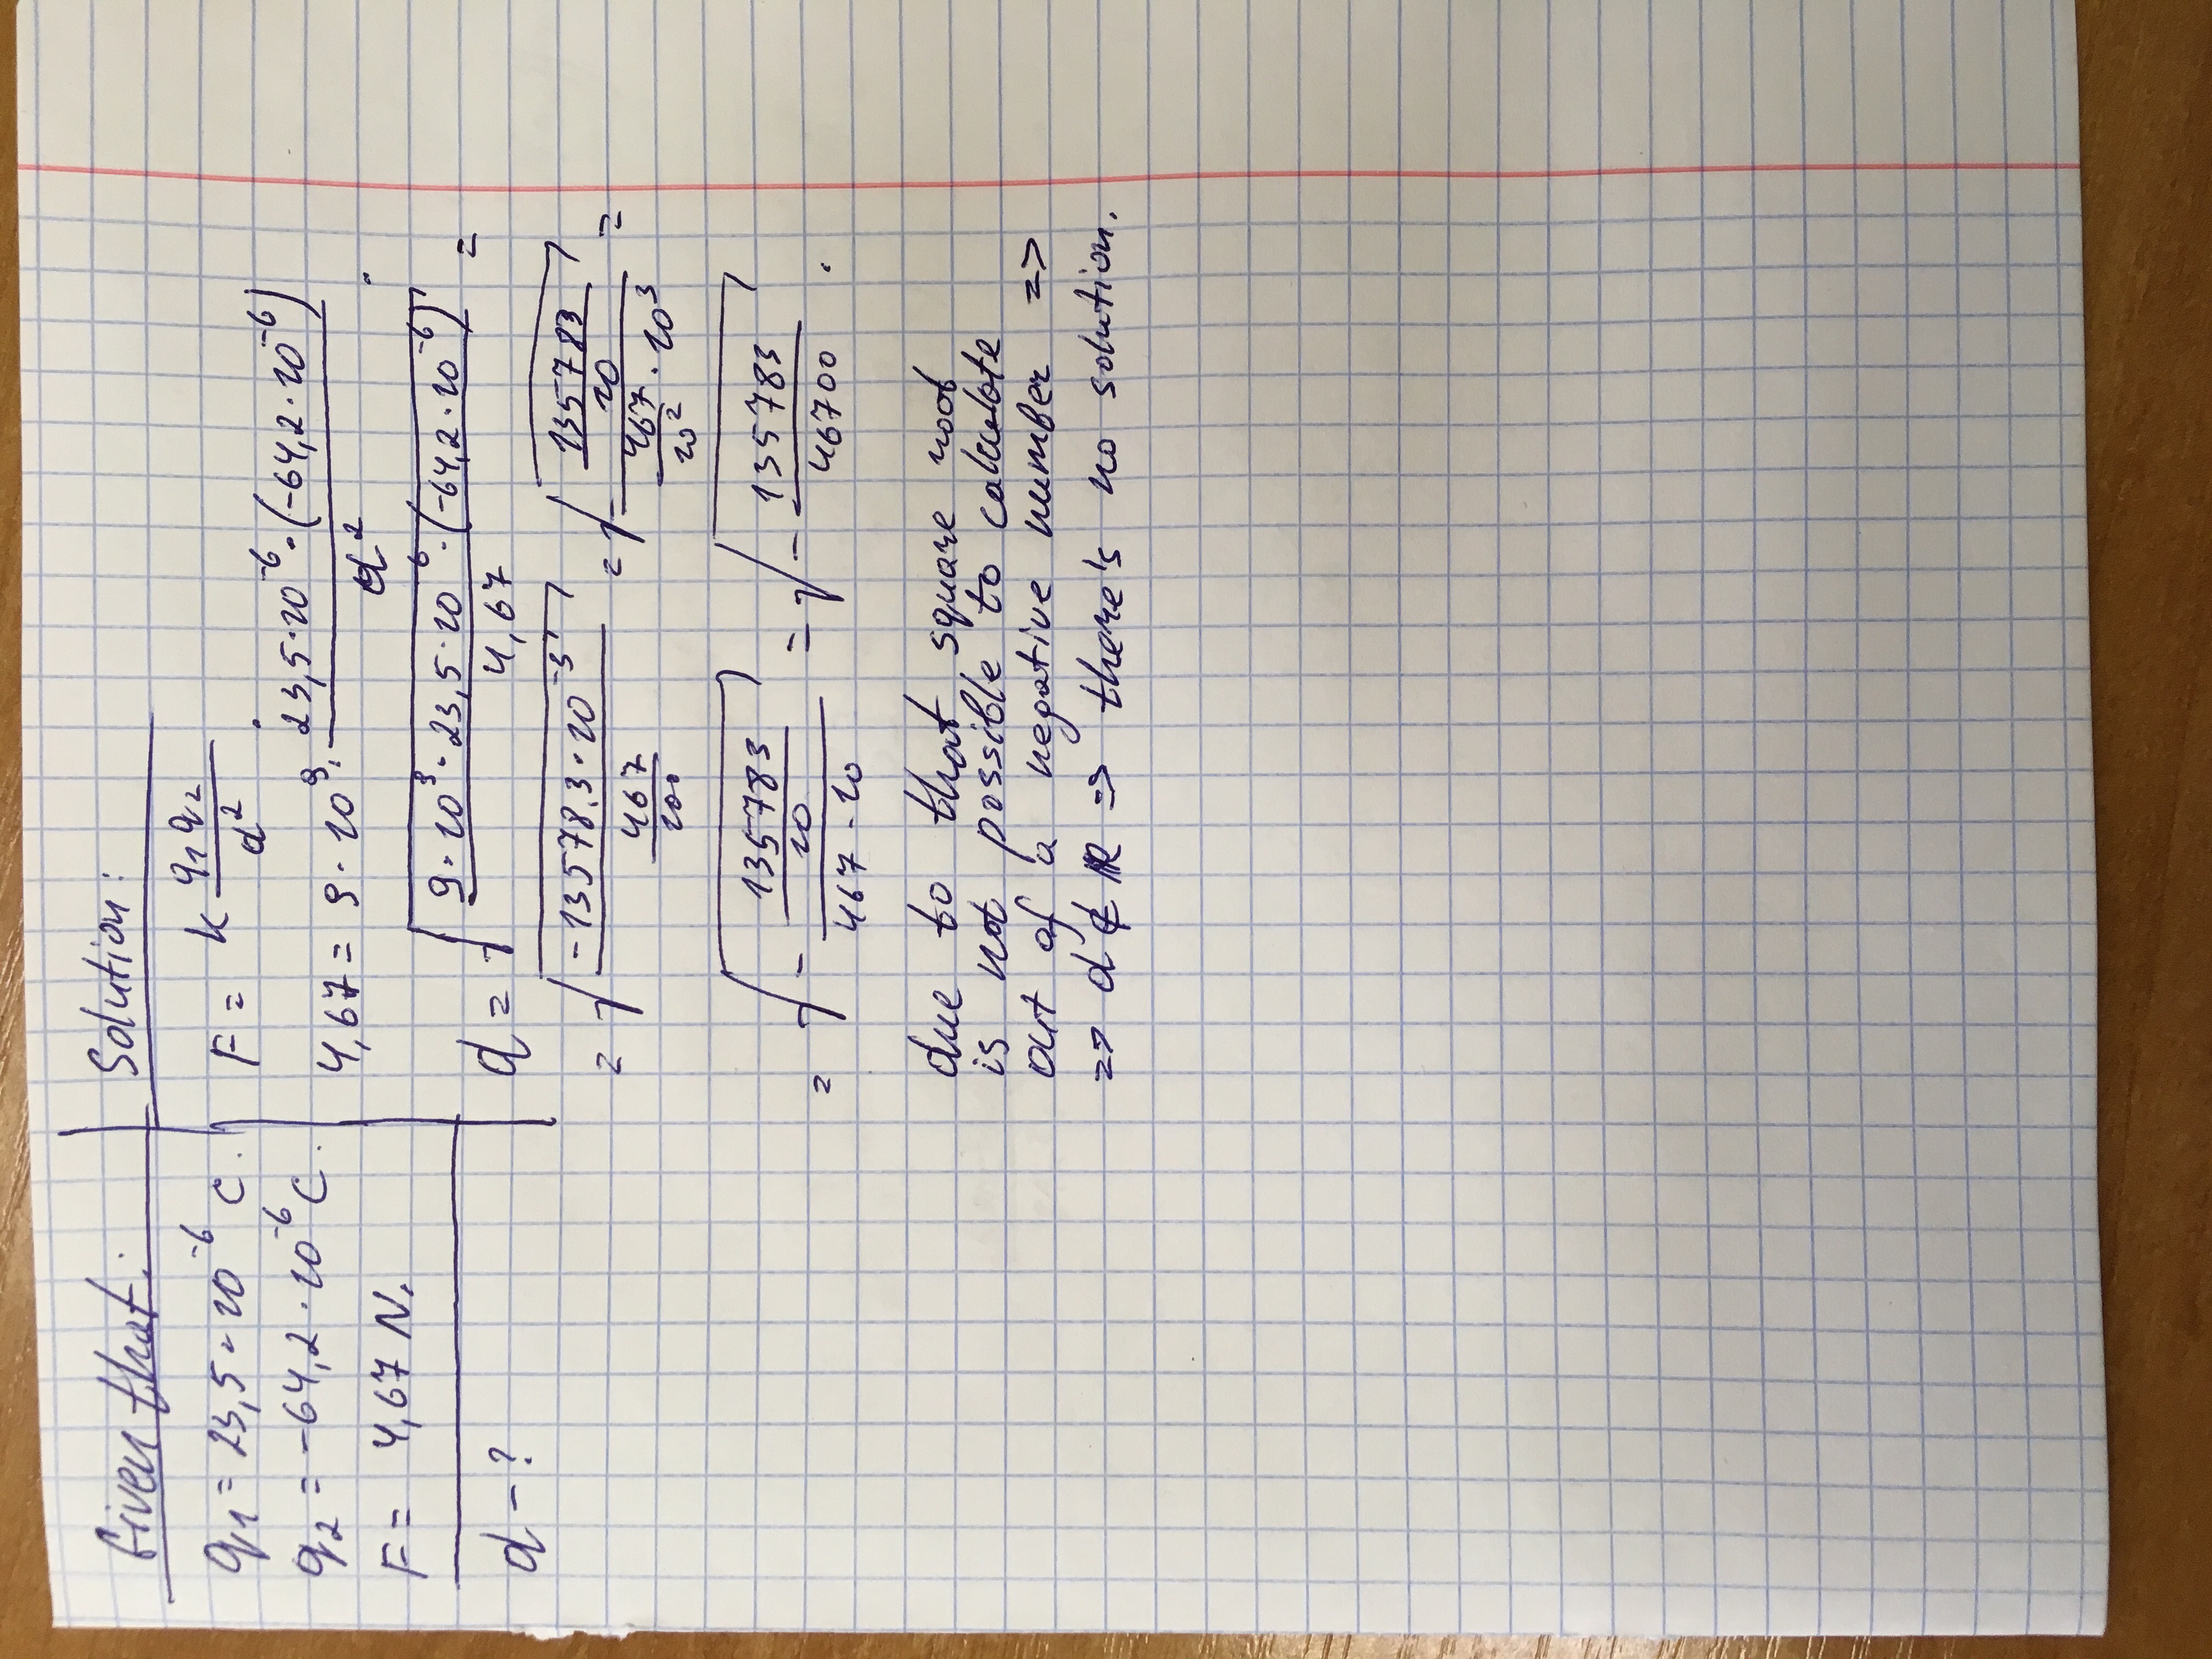 Given that:
q₁ = 23,5·10⁻⁶ C.
q₂ = -64,2·10⁻⁶ C.
F = 4,67 N.
d - ?
Solution:
F = k q₁q₂/d² .
4,67 = 9·10⁹· 23,5·10⁻⁶·(-64,2·10⁻⁶)/d² .
d = √(9·10⁹·23,5·10⁻⁶·(-64,2·10⁻⁶)/4,67) =
= √(-13578,3·10⁻³/(467/100)) = √(-(135783/10)/(467/10²·10³)) =
= √(-(135783/10)/(467·10)) = √(-135783/46700) .
due to that square root
is not possible to calculate
out of a negative number =>
=> d ∉ ℝ => there's no solution.